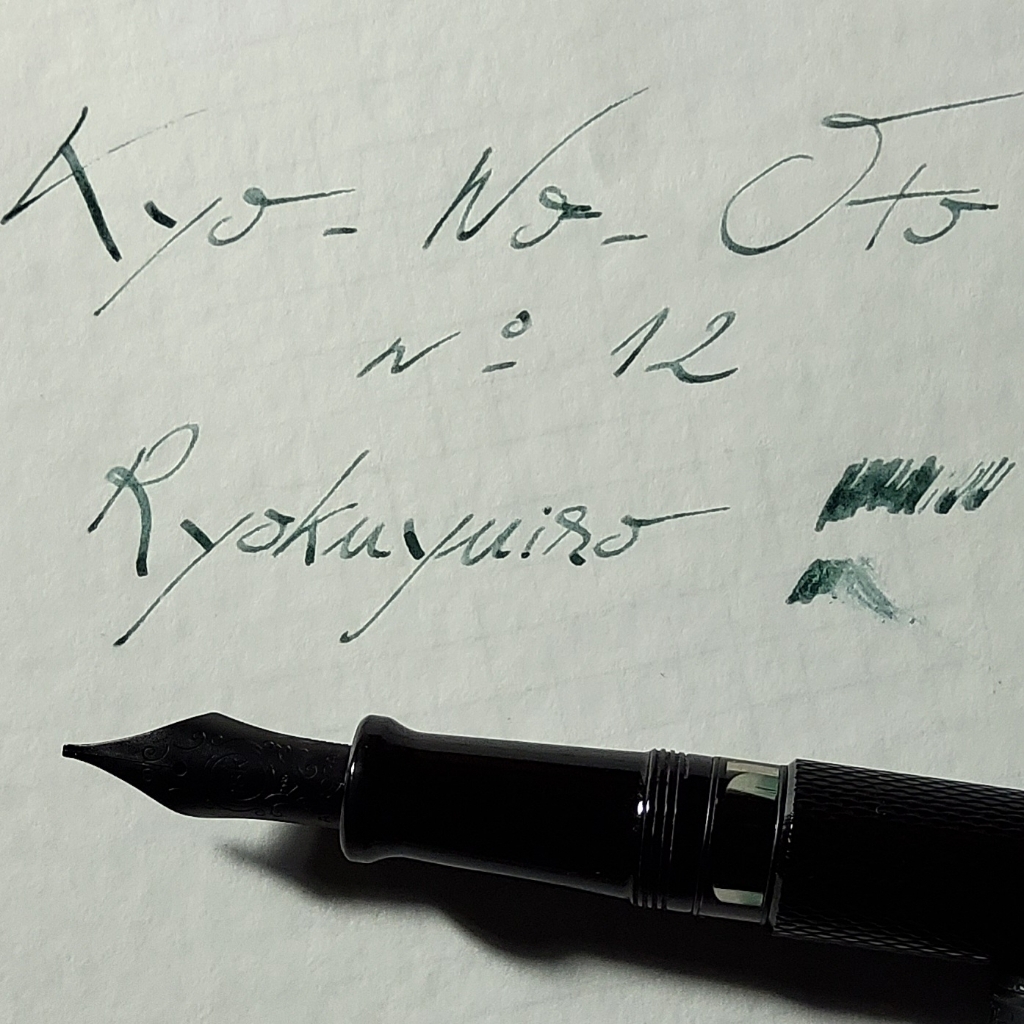 Kyo - No - Oto
Nº 12
Ryokuyuiro